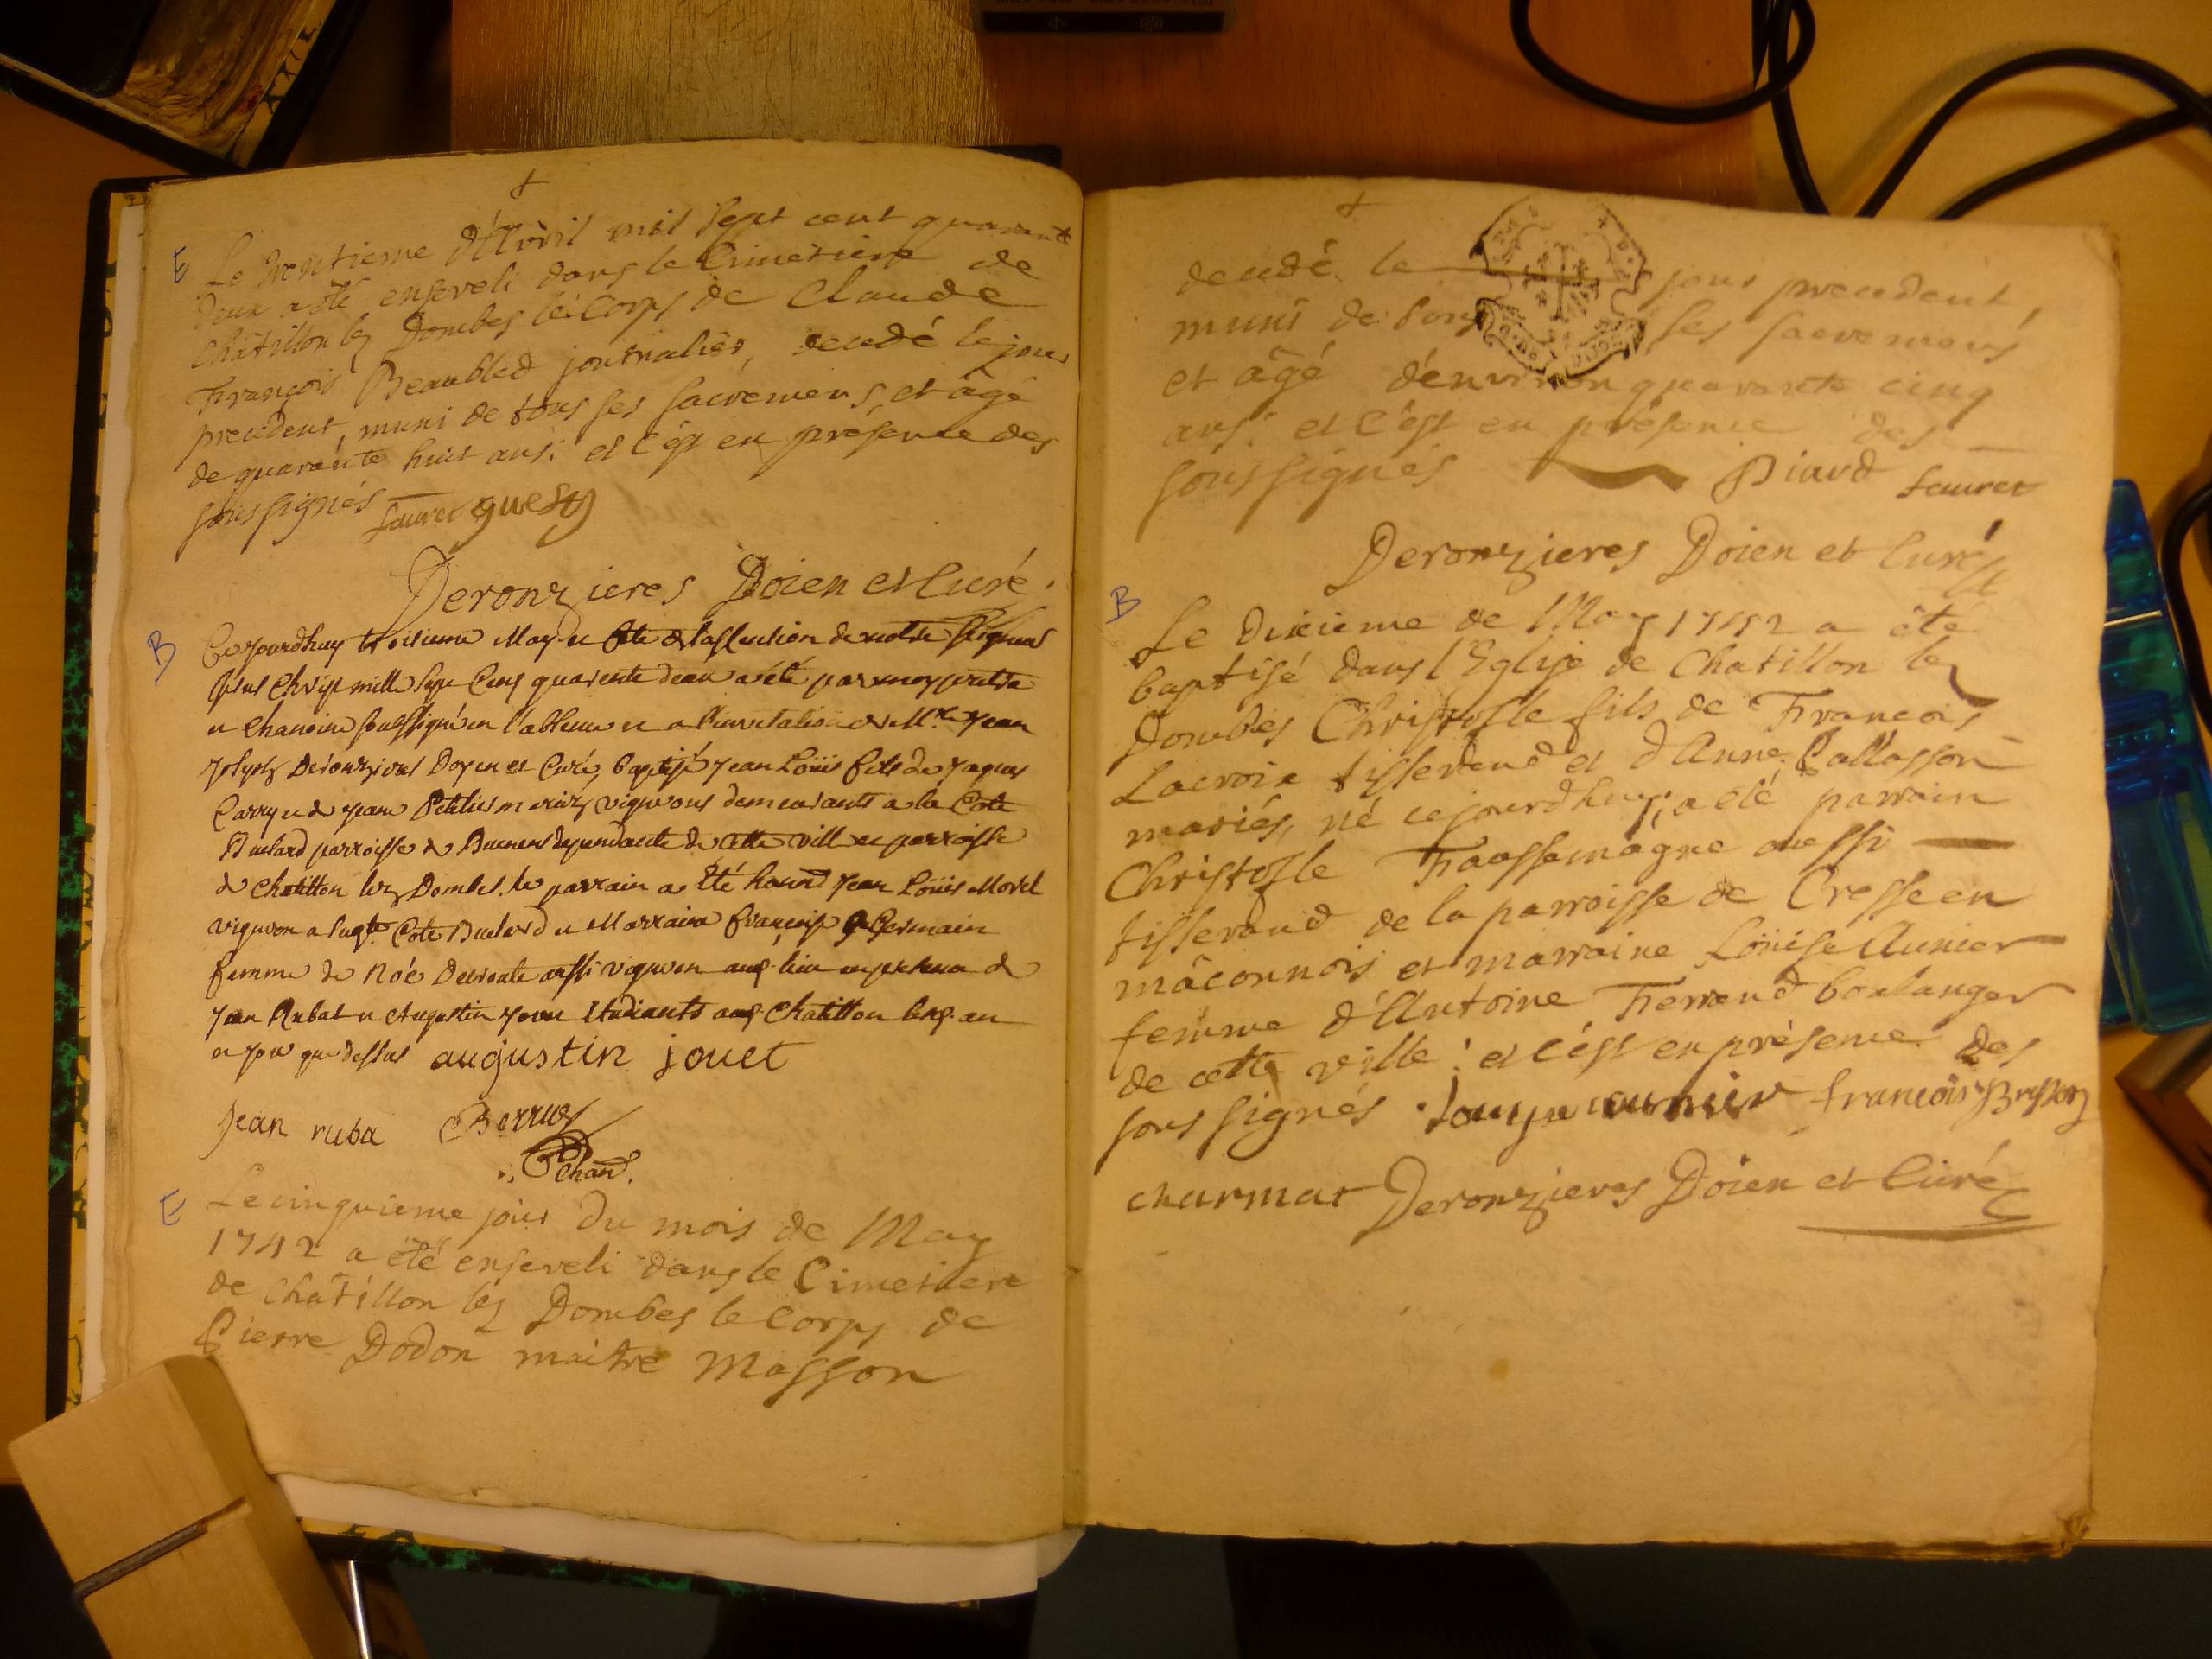 E Le trentieme d'Avril mil sept cent quarante
deux a été enseveli dans le Cimetiere de
Châtillon les Dombes le Corps de Claude
François Beaubled journalier, decedé le jour
precedent, muni de tous ses sacremens, et âgé
de quarante huit ans; et c'est en présence des
soussignés Sauret guesy
Deronzieres Doien et Curé.
B Ce jourdhuy troisieme May et fête de lascension de notre seigneur
Jesus Christ mille sept Cens quarente deux a été par moy pretre
et chanoine soussigné en l'absence et a l'invitation de Mre Jean
Joseph Deronzieres Doyen et Curé, baptisé Jean Loüis fils de Jaques
Carry et de Jeane Petit mariez vignerons demeurants a la Cote
Buelard parroisse de Buenens dependante de cette ville et parroisse
de Chatillon les Dombes. le parrain a été Jean Loüis Morel
vigneron a Cote Buelard et Marraine françoise Germain
femme de Noé aussi vigneron aud. lieu en presence de
Jean Rubat et Augustin Jouet Etudiants aud. Chatillon an
et jour que dessus augustin jouet
Jean ruba Berruz
Chan.
E Le cinquieme jour du mois de May
1742 a été enseveli dans le Cimetiere
de Châtillon lès Dombes le Corps de
Pierre Dodon maitre Masson
decedé le jour precedent,
muni de tous ses sacremens
et âgé d'environ quarante cinq
ans; et c'est en présence des
soussignés Piard Sauret
Deronzieres Doien et Curé
B Le dixieme de May 1742 a été
baptisé dans l'Eglise de Chatillon les
Dombes Christofle fils de François
Lacroix tisserand et d'Anne Pallasson
mariés, né cejourdhuy; a été parrain
Christofle Fraossemagne aussi
tisserand de la parroisse de Cresse en
mâconnois et marraine Loüise Aunier
femme d'Antoine Ferrand boulanger
de cette ville; et c'est en présence des
soussignés. aunier françois Bresson
charmat Deronzieres Doien et Curé